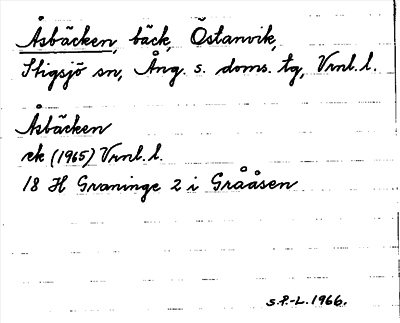 Åsbäcken, bäck, Östanvik,
Stigsjö sn, Ång. s. doms. tg, Vrnl. l.
Åsbäcken
ek (1965) Vrnl. l.
18 H Graninge 2 i Grååsen
S.P.-L. 1966.